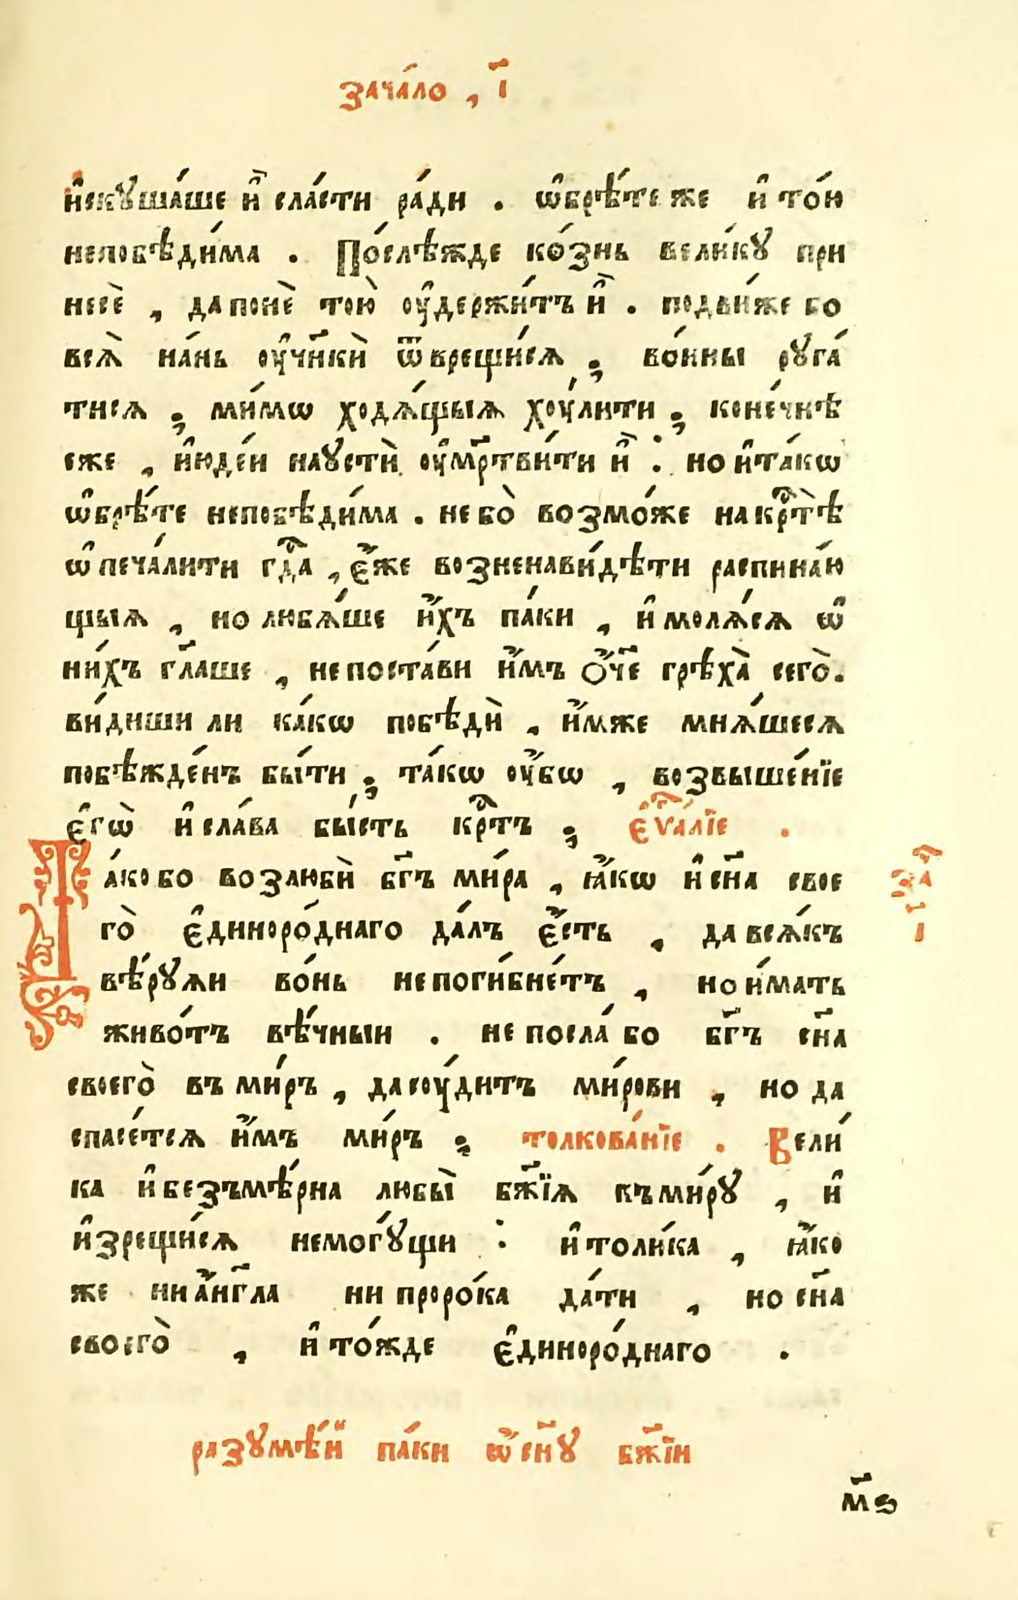 зача́ло , і҃
и҆скꙋша́ше и҆̀ сла́сти ра́ди . ѡ҆брѣ́те же и҆ то́ю
непобѣди́ма . По́слѣжде ко́знь вели́кꙋ при
несѐ , да понѐ то́ю ᲂу҆держи́тъ и҆̀ . подви́же бо
всѧ̀ на́нь ᲂу҆чн҃кѝ ѿврещи́сѧ ; во́ины рꙋга́
тисѧ ; ми́мѡ ходѧ́щыѧ хᲂу́лити ; коне́чнѣ
сже , и҆юде́и наꙋстѝ ᲂу҆мр҃тви́ти и҆̀ : но и҆ та́кѡ
ѡ҆брѣ́те непобѣди́ма . не бо̀ возмо́же на крⷭ҇тѣ
ѡ҆печа́лити гдⷭ҇а , є҆́же возненави́дѣти распина́ю
щыѧ , но любѧ́ше и҆́хъ па́ки , и҆ молѧ́сѧ ѡ҆
ни́хъ гл҃аше , не поста́ви и҆́мъ ѻ҆́ч҃е грѣха̀ сего̀.
ви́диши ли ка́кѡ побѣдѝ , и҆́мже мнѧ́шесѧ
побѣжде́нъ бы́ти ; та́кѡ ᲂу҆́бѡ , возвыше́нїе
є҆гѡ̀ и҆ сла́ва бы́сть крⷭ҇тъ ; є҆ѵⷢ҇а́лїе .
Та́ко бо возлюбѝ бг҃ъ ми́ра , ꙗ҆́кѡ и҆ сн҃а свое
го̀ є҆диноро́днаго да́лъ є҆́сть , да всѧ́къ
вѣ́рꙋѧи во́нь не поги́бнетъ , но и́мать
живо́тъ вѣ́чныи . не посла́ бо бг҃ъ сн҃а
своего̀ въ ми́ръ , да сᲂу́дитъ ми́рови , но да
спасе́тсѧ и҆́мъ ми́ръ ; толкова́нїе . Вели́
ка и҆ безъмѣ́рна любы̀ бж҃їѧ къ ми́рꙋ , и҆
и҆зрещи́сѧ немогꙋ́щи : и҆ толи́ка , ꙗ҆́ко
же ни а҆́нг҃ла ни проро́ка да́ти , но сн҃а
своего̀ , и҆ то́жде є҆диноро́днаго .
за
і
разꙋмѣ́й па́ки ѡ҆ сн҃ꙋ бж҃їи
м҃ѕ